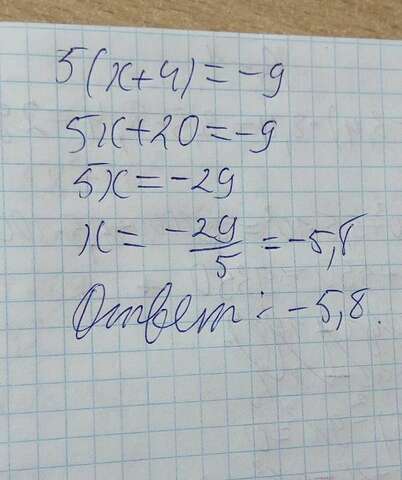 5(x+4)=-9
5x+20=-9
5x=-29
x=-29/5=-5,8
Ответ: -5,8.